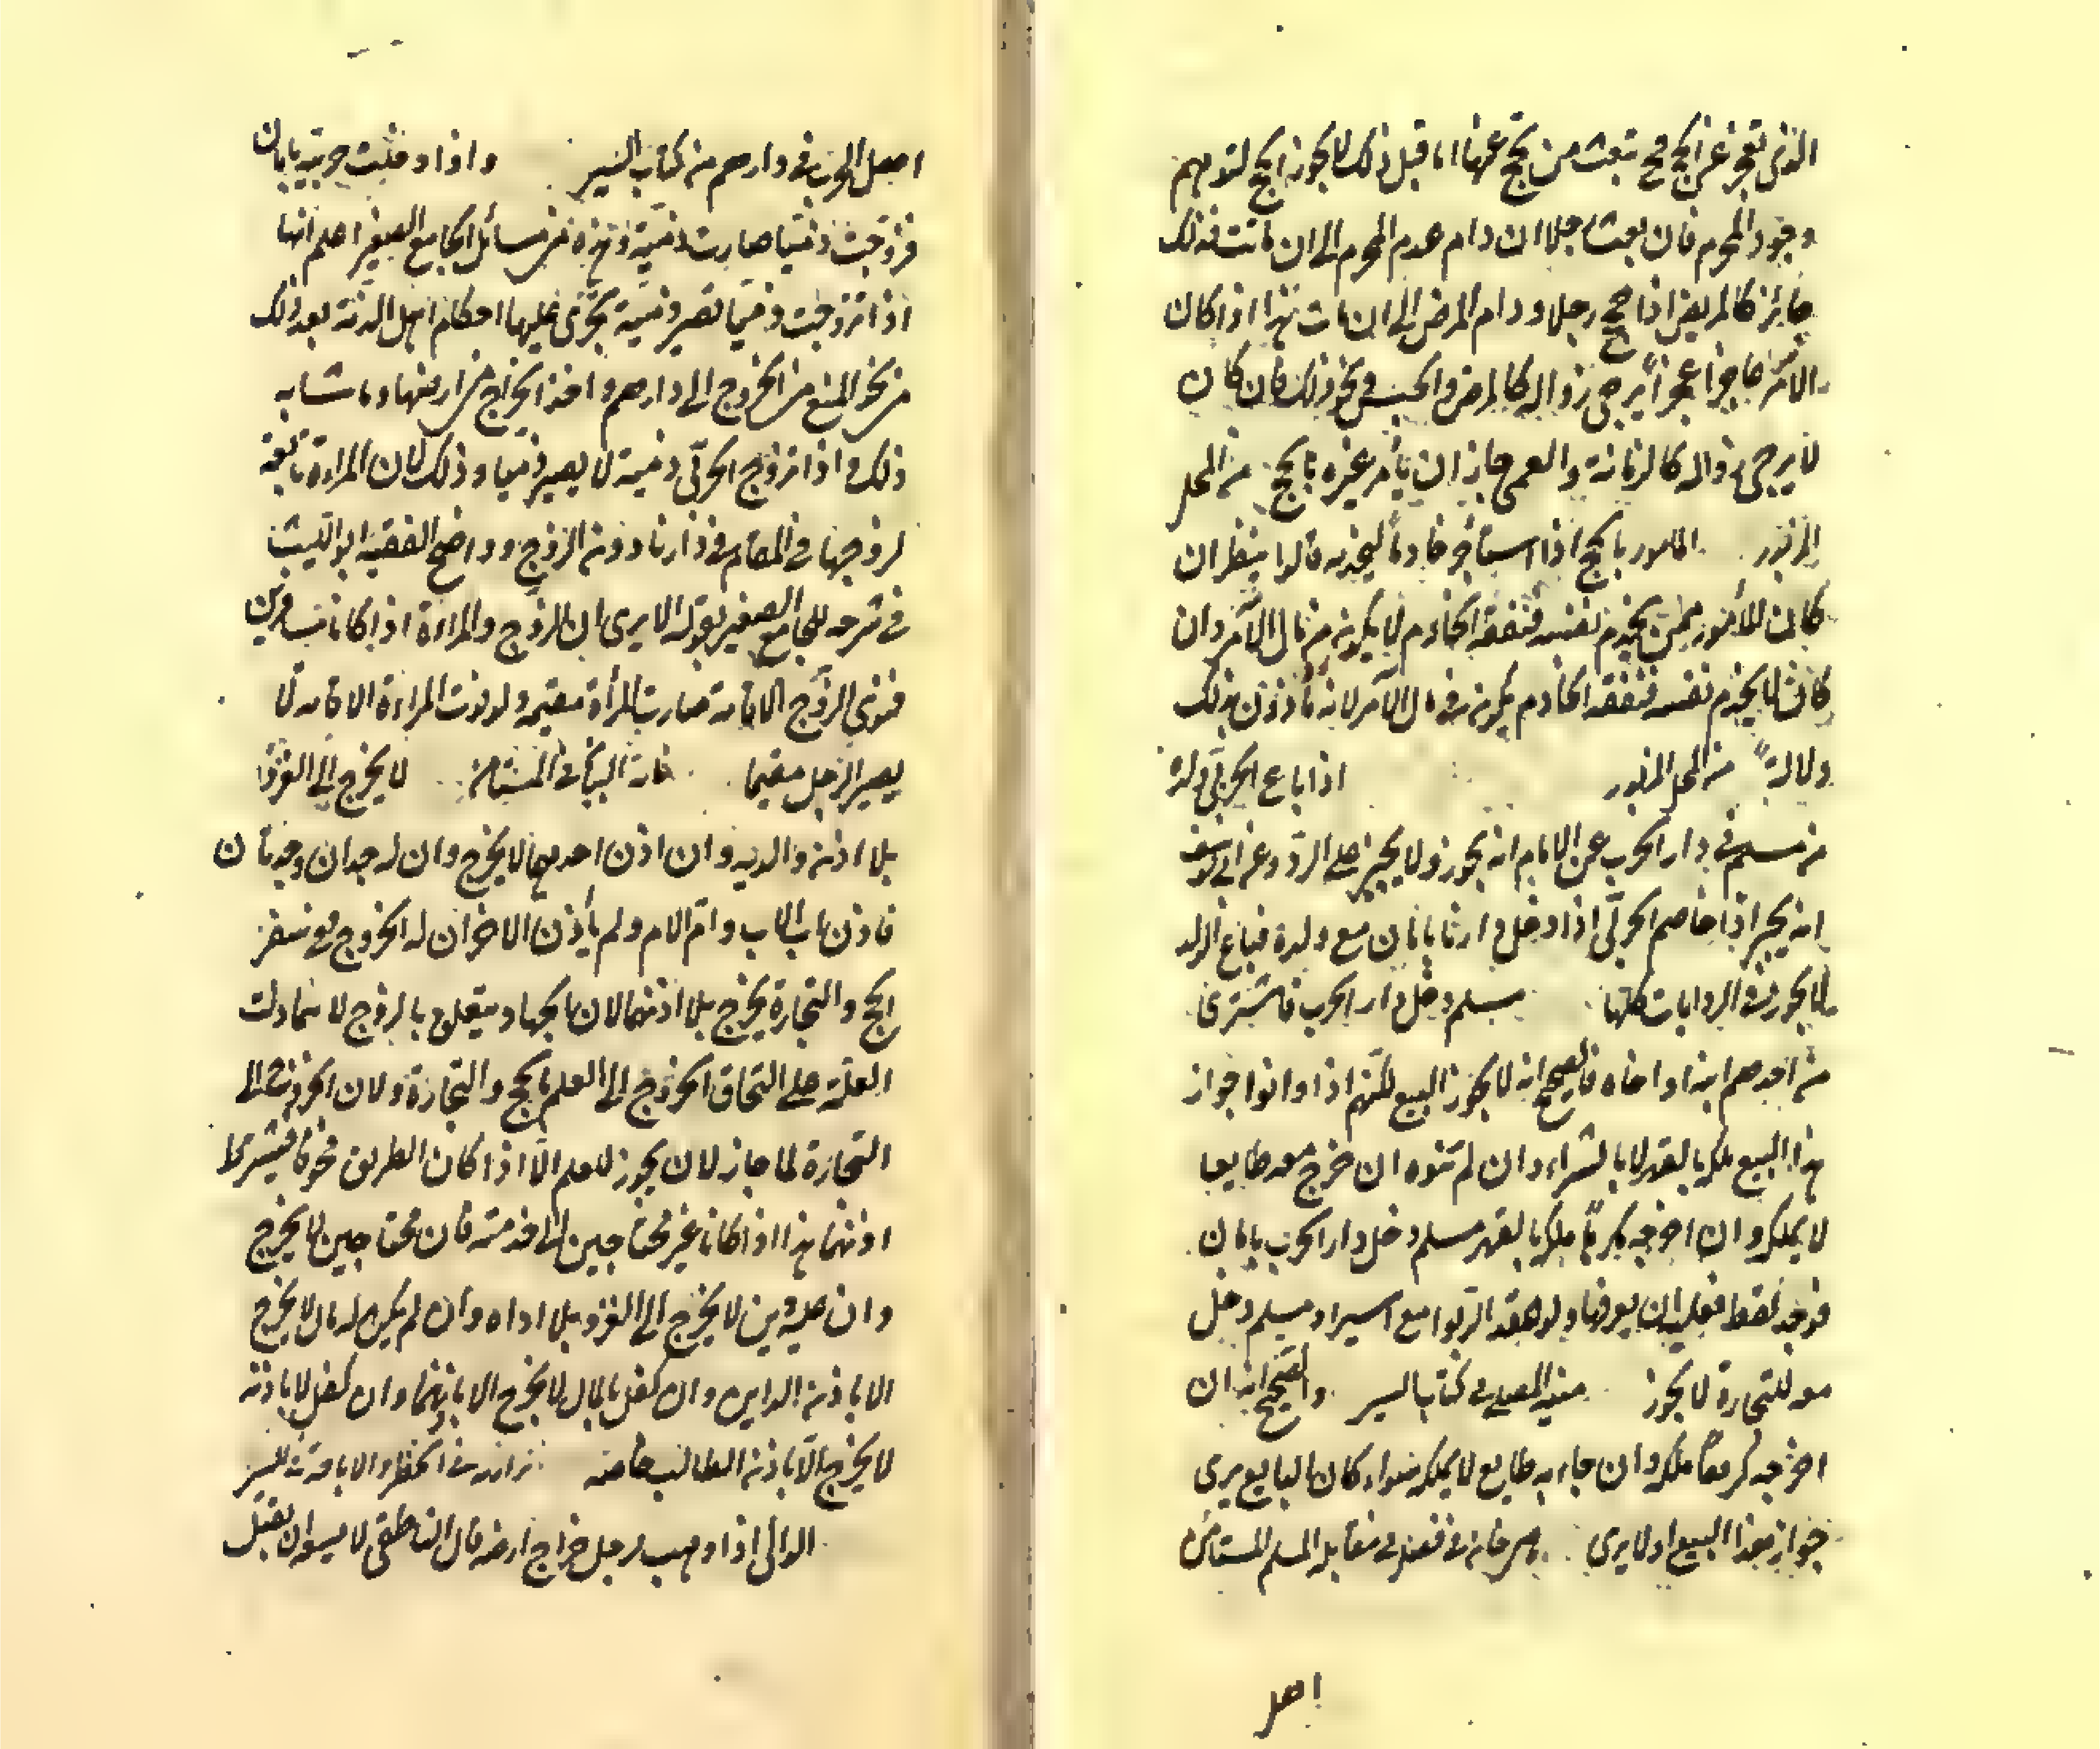 الذى تعجز عن الحج فح تبعث من يحج عنها اما قبل ذلك لا يجوز الحج لتوهم
وجود المحرم فان بعثت رجلا ان دام عدم المحرم الى ان ماتت فذلك
جائز كالمريض اذا احج رجلا ودام المرض الى ان مات هذا اذا كان
الامر عاجزا عجزا يرجى زواله كالمرض والحبس ونحو ذلك فان كان
لا يرجى زواله كالزمانة والعمى جاز ان يأمر غيره بالحج من المحل
المزبور المامور بالحج اذا استاجر خادما ليخدمه قالوا ينظر ان
كان المأمور ممن يخدم نفسه فنفقة الخادم لا يكون من مال الآمر وان
كان لا يخدم نفسه فنفقة الخادم يكون فى مال الآمر لانه مأذون بذلك
دلالة من المحل المزبور اذا باع الحربى ولده
من مسلم فى دار الحرب عن الامام انه يجوز ولا يجبر على الرد وعن ابى يوسف
انه يجبر اذا خاصم الحربى اذا دخل دارنا بامان مع ولده فباع الولد
لا يجوز فى الروايات كلها مسلم دخل دار الحرب فاشترى
من احدهم ابنه او اخاه فالصحيح انه لا يجوز البيع لكنهم اذا دانوا جواز
هذا البيع ملك بالقهر لا بالشراء وان لم تنوه ان خرج معه طايعا
لا يملك وان اخرجه كرها ملك بالقهر مسلم دخل دار الحرب بامان
فوجد لقطة فعليه ان يعرفها ولو عقد الربوا مع اسير او مسلم دخل
معه للتجارة لا يجوز منية المصلى فى كتاب السير والصحيح انه ان
اخرجه كرها ملكه وان جاء به طايع لا يملكه سواء كان البايع يرى
جواز هذا البيع او لا يرى فى فصل فى مقابلة المسلم المستأمن
اهل
اهل الحرب فى دارهم من كتاب السير واذا دخلت حربية بامان
فزوجت ذميا صارت ذمية وهذه من مسائل الجامع الصغير اعلم انها
اذا تزوجت ذميا تصير ذمية تجرى عليها احكام اهل الذمة بعد ذلك
من نحو المنع من الخروج الى دارهم واخذ الخراج من ارضها وما شابه
ذلك واذا تزوج الحربى ذمية لا يصير ذميا وذلك لان المراة تابعة
لزوجها فى المقام فى دارنا دون الزوج وواضح الفقيه ابو الليث
فى شرحه للجامع الصغير بقوله الا يرى ان الزوج والمراة اذا كانا مسافرين
فنوى الزوج الاقامة صارت المرأة مقيمة ولو نوت المراة الاقامة لا
يصير الرجل مقيما غاية البيان فى المستامن لا يخرج الى الغزو
بلا اذن والديه وان اذن احدهما لا يخرج وان له جدان وجدتان
فاذن اب الاب وام الام ولم يأذن الاخران له الخروج فى سفر
الحج والتجارة يخرج بلا اذنهما لان الجهاد يتعلق بالروح لا بما دلت
العلة على التحاق الخروج الى العلم بالحج والتجارة ولان الخروج الى
التجارة لما جاز لان يجوز للعلم الا اذا كان الطريق مخوفا فيشترط
اذنهما هذا اذا كانا غير محتاجين الى خدمته فان محتاجين لا يخرج
وان عليه دين لا يخرج الى الغزو بلا اداه وان لم يكن له مال لا يخرج
الا باذن الداين وان كفل بالمال لا يخرج الا باذنهما وان كفل لا باذنه
لا يخرج الا باذن الطالب خاصة بزازيه فى الحظر والاباحة من السير
الوالى اذا وهب لرجل خراج ارضه قال الناطفى لا يسوا ان يقبل